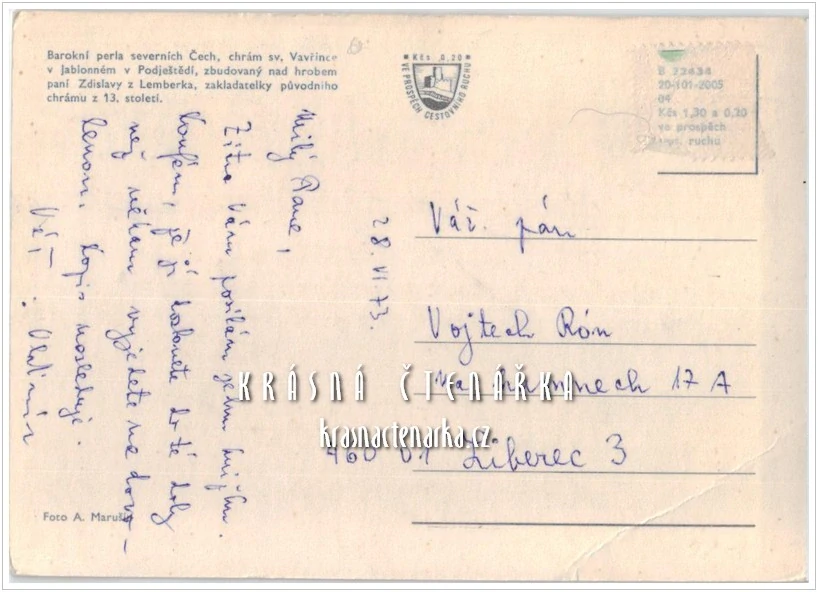 Barokní perla severních Čech, chrám sv. Vavřince
v Jablonném v Podještědí, zbudovaný nad hrobem
paní Zdislavy z Lemberka, zakladatelky původního
chrámu z 13. století.
Kčs 0,20
VE PROSPĚCH CESTOVNÍHO RUCHU
B 72434
20-101-2005
04
Kčs 1,30 a 0,20
ve prospěch
ruchu
28. VI. 73.
Milý Pane,
Zítra Vám posílám
Doufám, že ji dostanete do té doby
než někam vyjedete na dovo-
lenou. Dopis následuje.
Váš Vladimír
Váž. pán
Vojtech Rón
17 A
460 01 Liberec 3
Foto A. Maruš
KRÁSNÁ ČTENÁŘKA
krasnactenarka.cz